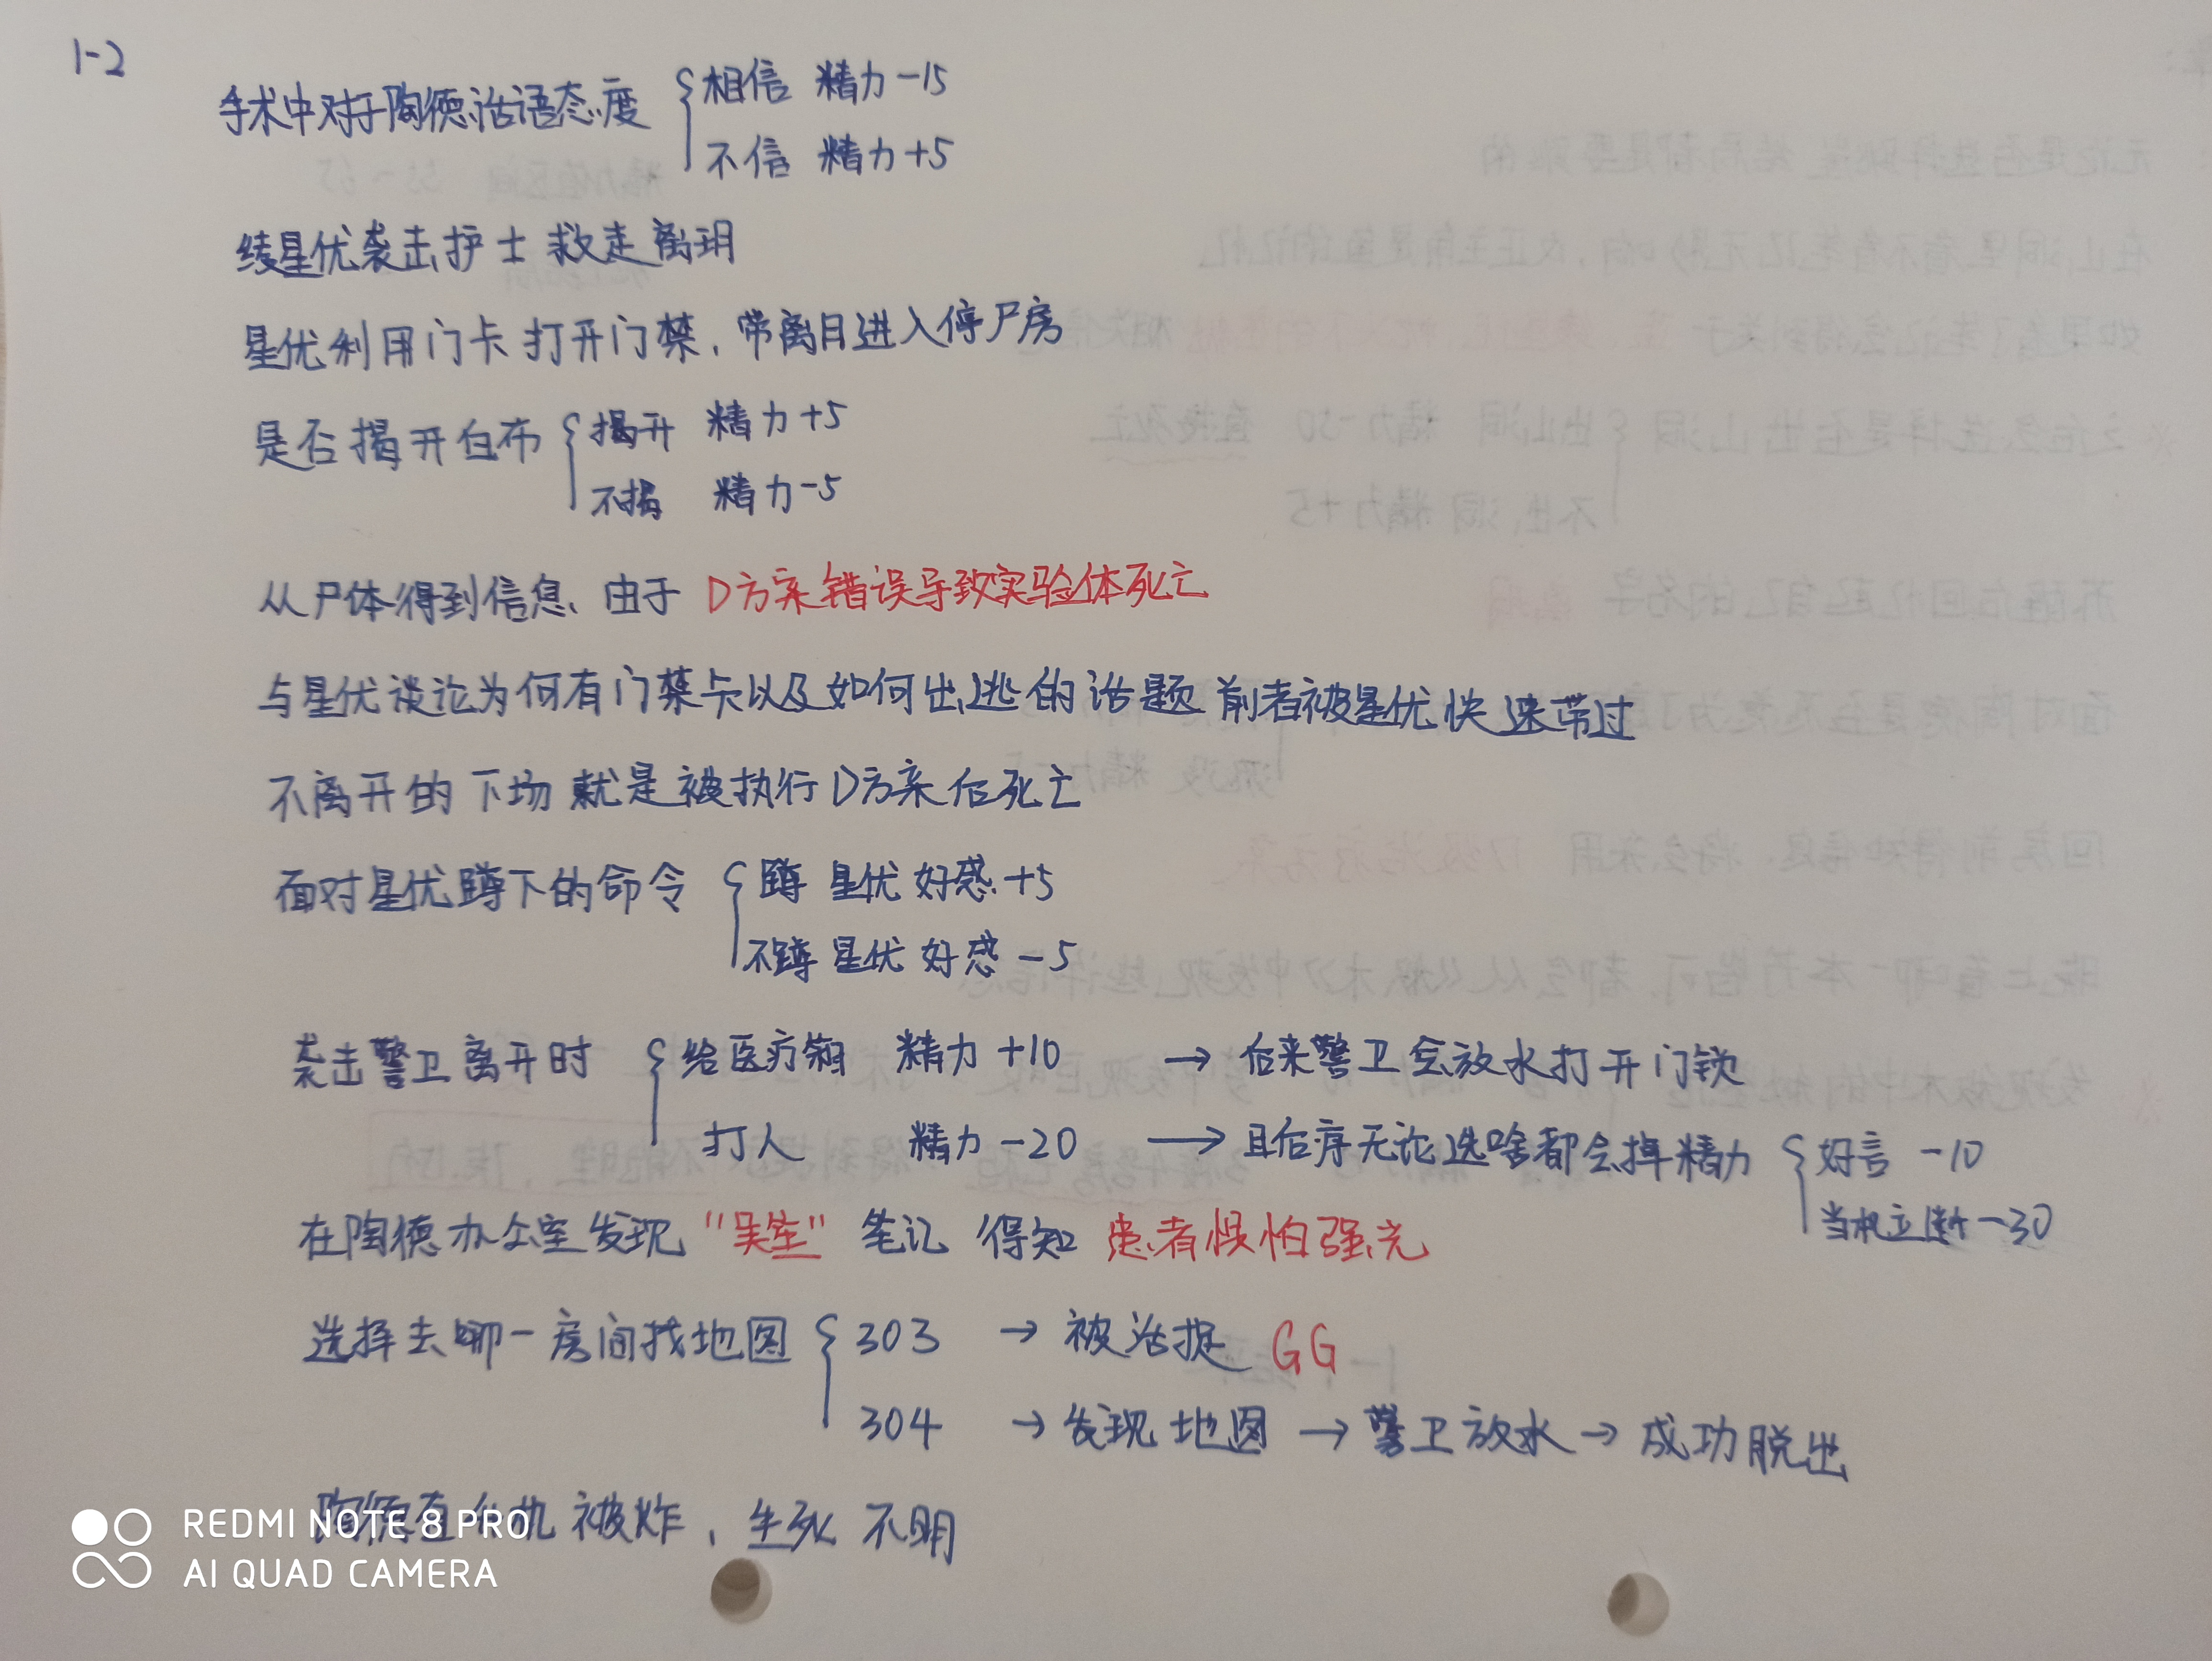 1-2
手术中对于陶德话语态度 { 相信 精力-15
不信 精力+5
绫星优袭击护士救走离玥
星优利用门卡打开门禁，带离月进入停尸房
是否揭开白布 { 揭开 精力+5
不揭 精力-5
从尸体得到信息、由于 D方案错误导致实验体死亡
与星优谈论为何有门禁卡以及如何出逃的话题 前者被星优快速带过
不离开的下场就是被执行D方案后死亡
面对星优蹲下的命令 { 蹲 星优好感+5
不蹲 星优好感-5
袭击警卫离开时 { 给医疗箱 精力+10 → 后来警卫会放水打开门锁
打人 精力-20 → 且后序无论选啥都会掉精力 { 好言 -10
当机立断 -30
在陶德办公室发现 "吴笙" 笔记 得知 患者惧怕强光
选择去哪一房间找地图 { 303 → 被活捉 GG
304 → 发现地图 → 警卫放水 → 成功脱出
陶德直机被炸，生死不明
REDMI NOTE 8 PRO
AI QUAD CAMERA